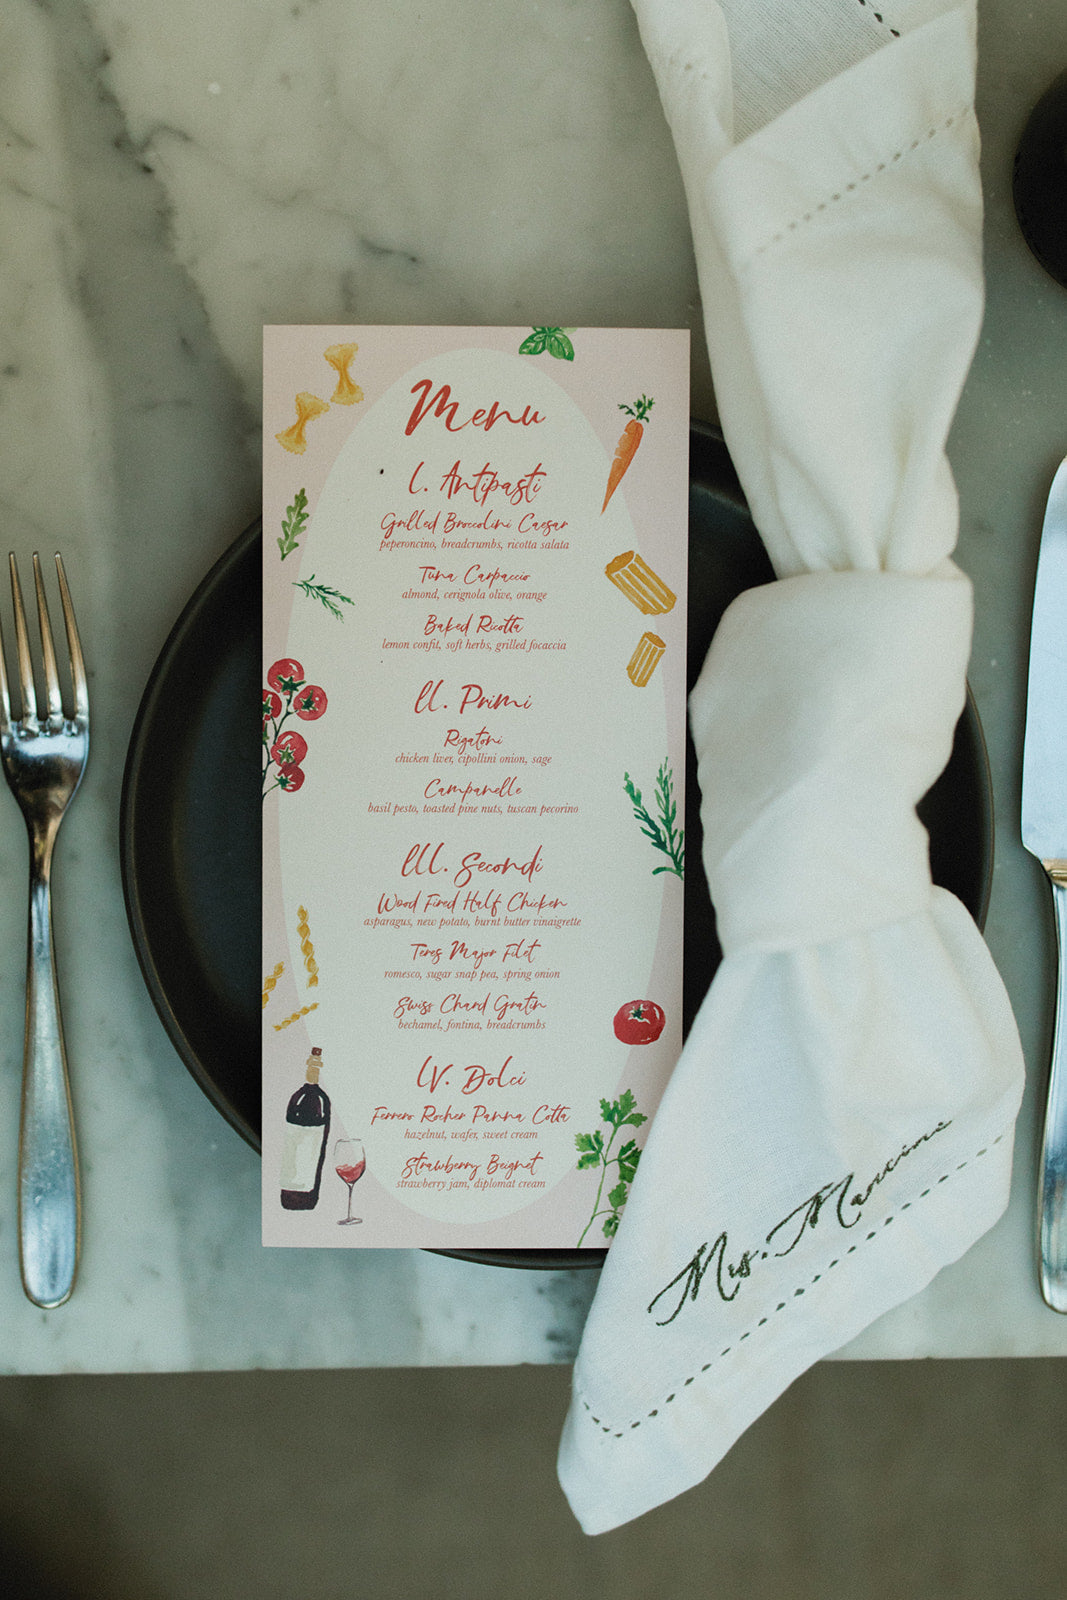 Menu
I. Antipasti
Grilled Broccolini Caesar
peperoncino, breadcrumbs, ricotta salata
Tuna Carpaccio
almond, cerignola olive, orange
Baked Ricotta
lemon confit, soft herbs, grilled focaccia
II. Primi
Rigatoni
chicken liver, cipollini onion, sage
Campanelle
basil pesto, toasted pine nuts, tuscan pecorino
III. Secondi
Wood Fired Half Chicken
asparagus, new potato, burnt butter vinaigrette
Teres Major Filet
romesco, sugar snap pea, spring onion
Swiss Chard Gratin
bechamel, fontina, breadcrumbs
IV. Dolci
Ferrero Rocher Panna Cotta
hazelnut, wafer, sweet cream
Strawberry Beignet
strawberry jam, diplomat cream
Mrs. Mancini